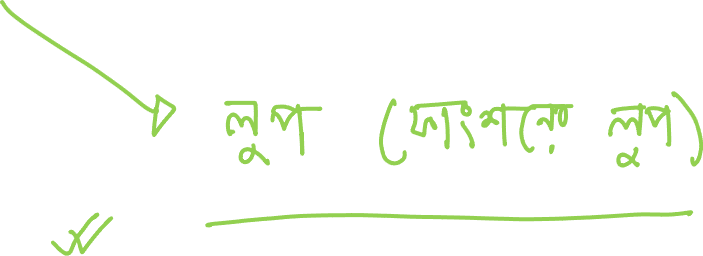 লুপ (ফাংশনের লুপ)